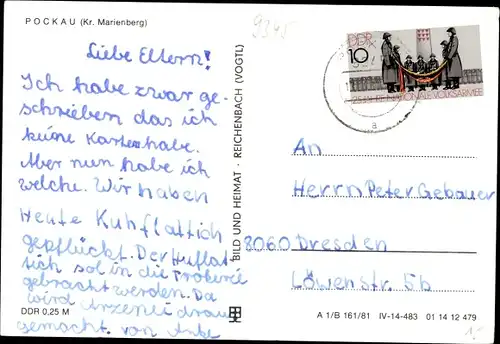 POCKAU (Kr. Marienberg)
9345
Liebe Eltern!
Ich habe zwar ge-
schrieben das ich
keine Karten habe.
Aber nun habe ich
welche. Wir haben
Heute Kuhflattich
gepflückt. Der Huflat
tich sol in die Drokerie
gebracht werden. Da
wird Arzenei drau
gemacht. von Anke
DDR 0,25 M
BILD UND HEIMAT · REICHENBACH (VOGTL)
DDR
10
25 JAHRE NATIONALE VOLKSARMEE
a
An
Herrn Peter Gebauer
8060 Dresden
Löwenstr. 5b
A 1/B 161/81 IV-14-483 01 14 12 479